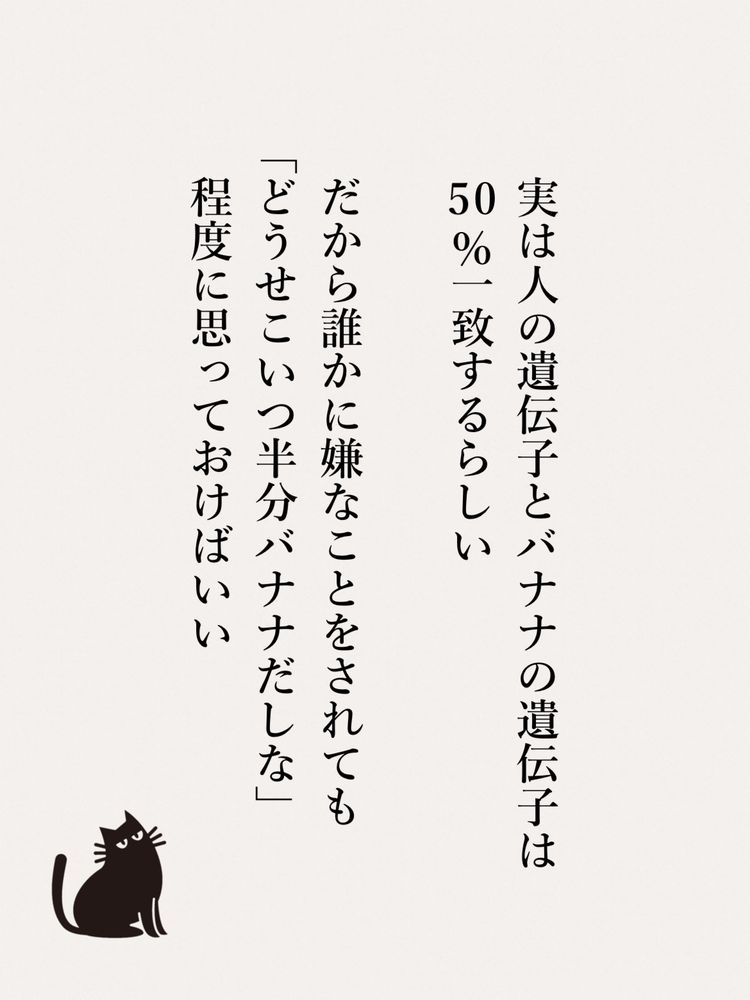 実は人の遺伝子とバナナの遺伝子は
50%一致するらしい
だから誰かに嫌なことをされても
「どうせこいつ半分バナナだしな」
程度に思っておけばいい